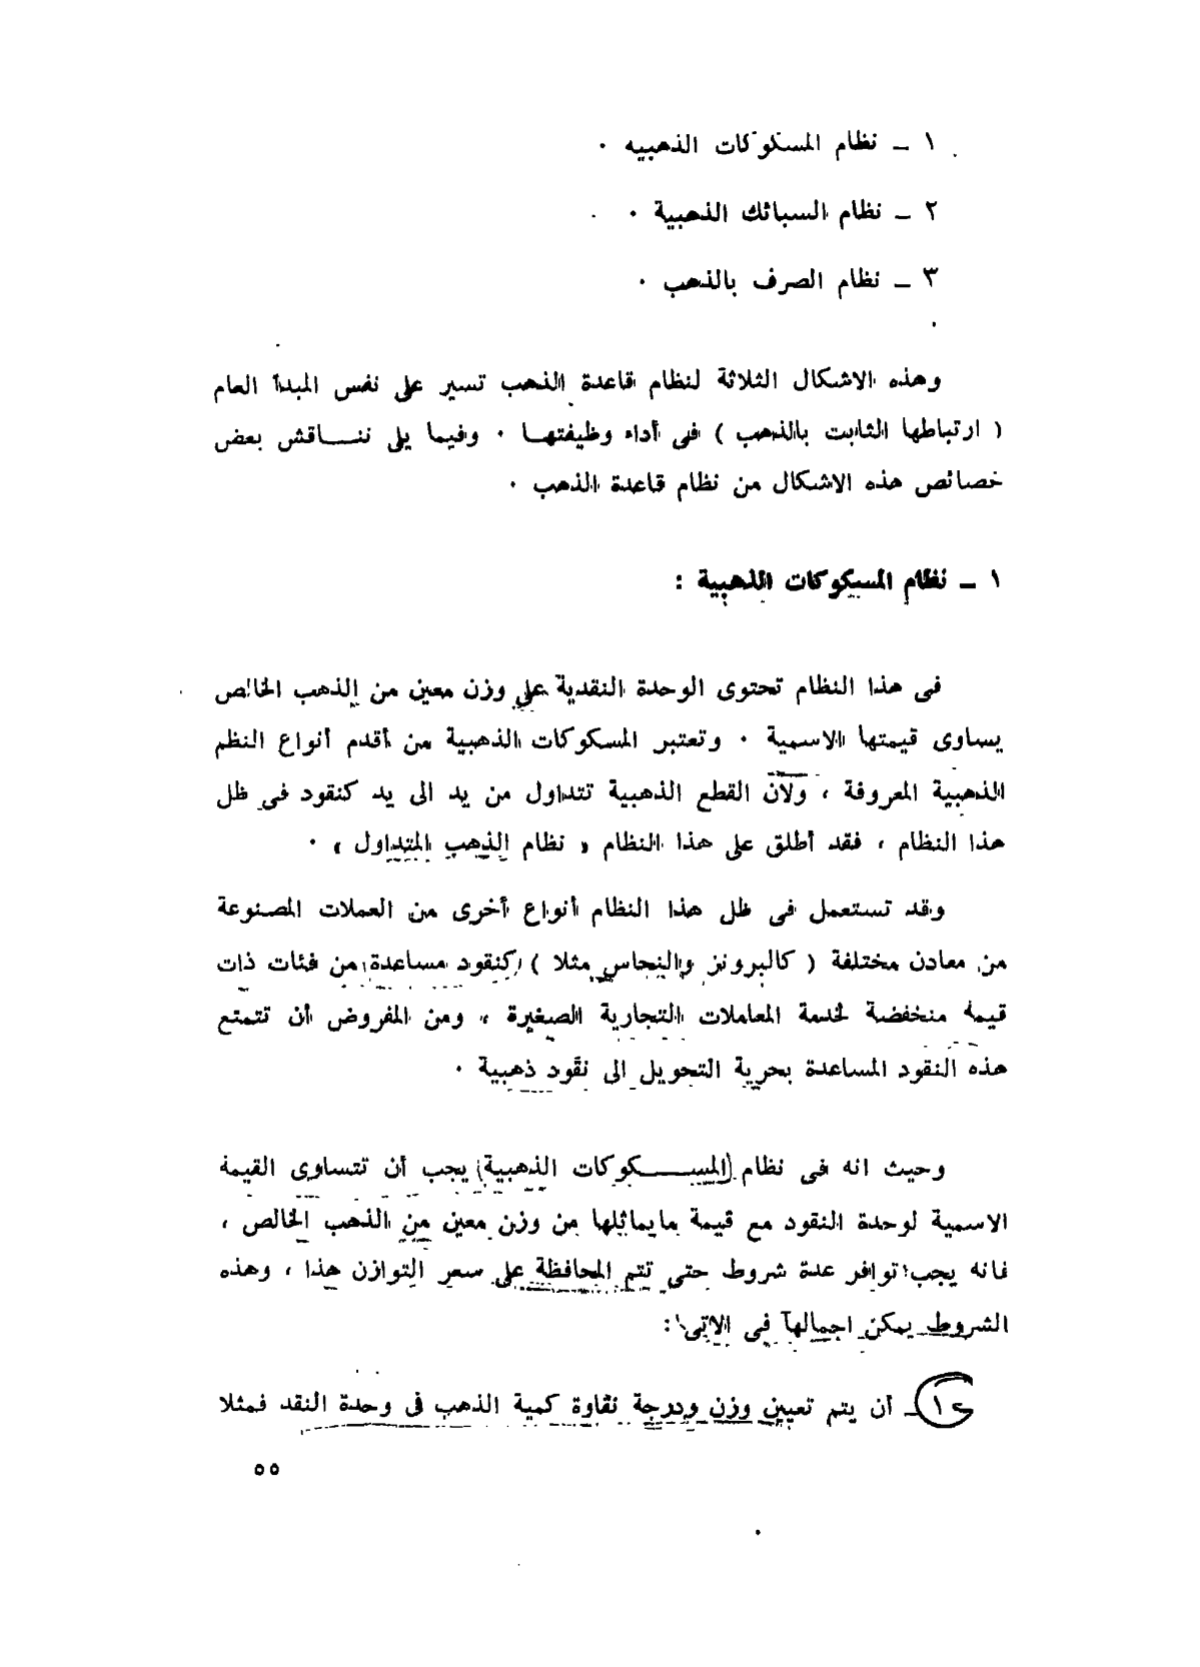 ١ ـ نظام المسكوكات الذهبيه ٠
٢ ـ نظام السبائك الذهبية ٠
٣ ـ نظام الصرف بالذهب ٠
وهذه الاشكال الثلاثة لنظام قاعدة الذهب تسير على نفس المبدأ العام
( ارتباطها الثابت بالذهب ) فى أداء وظيفتهـا ٠ وفيما يلى ننـــاقش بعض
خصائص هذه الاشكال من نظام قاعدة الذهب ٠
١ ـ نظام المسكوكات الذهبية :
فى هذا النظام تحتوى الوحدة النقدية على وزن معين من الذهب الخالص
يساوى قيمتها الاسمية ٠ وتعتبر المسكوكات الذهبية من أقدم أنواع النظم
الذهبية المعروفة ، ولأن القطع الذهبية تتداول من يد الى يد كنقود فى ظل
هذا النظام ، فقد أطلق على هذا النظام « نظام الذهب المتداول » ٠
وقد تستعمل فى ظل هذا النظام أنواع أخرى من العملات المصنوعة
من معادن مختلفة ( كالبرونز والنحاس مثلا ) كنقود مساعدة من فئات ذات
قيمة منخفضة لخدمة المعاملات التجارية الصغيرة ، ومن المفروض أن تتمتع
هذه النقود المساعدة بحرية التحويل الى نقود ذهبية ٠
وحيث انه فى نظام (المســـكوكات الذهبية) يجب أن تتساوى القيمة
الاسمية لوحدة النقود مع قيمة مايماثلها من وزن معين من الذهب الخالص ،
فانه يجب توافر عدة شروط حتى تتم المحافظة على سعر التوازن هذا ، وهذه
الشروط يمكن اجمالها فى الاتى :
١ ـ أن يتم تعيين وزن ودرجة نقاوة كمية الذهب فى وحدة النقد فمثلا
٥٥